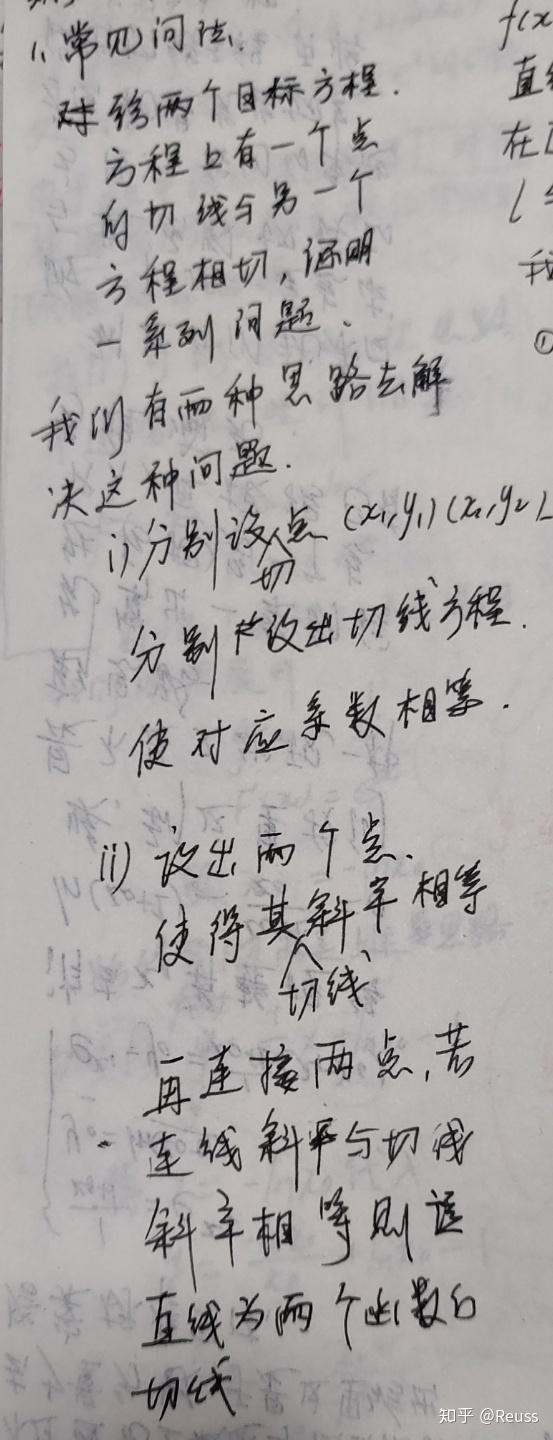 1. 常见问法.
对于两个目标方程.
方程上有一个点
的切线与另一个
方程相切,证明
一系列问题.
我们有两种思路去解
决这种问题.
i) 分别设切点 (x₁,y₁)(x₂,y₂)
分别设出切线方程.
使对应系数相等.
ii) 设出两个点.
使得其切线斜率相等
再连接两点,若
连线斜率与切线
斜率相等则该
直线为两个函数的
切线
f(x
直线
在
l
我
①
知乎 @Reuss